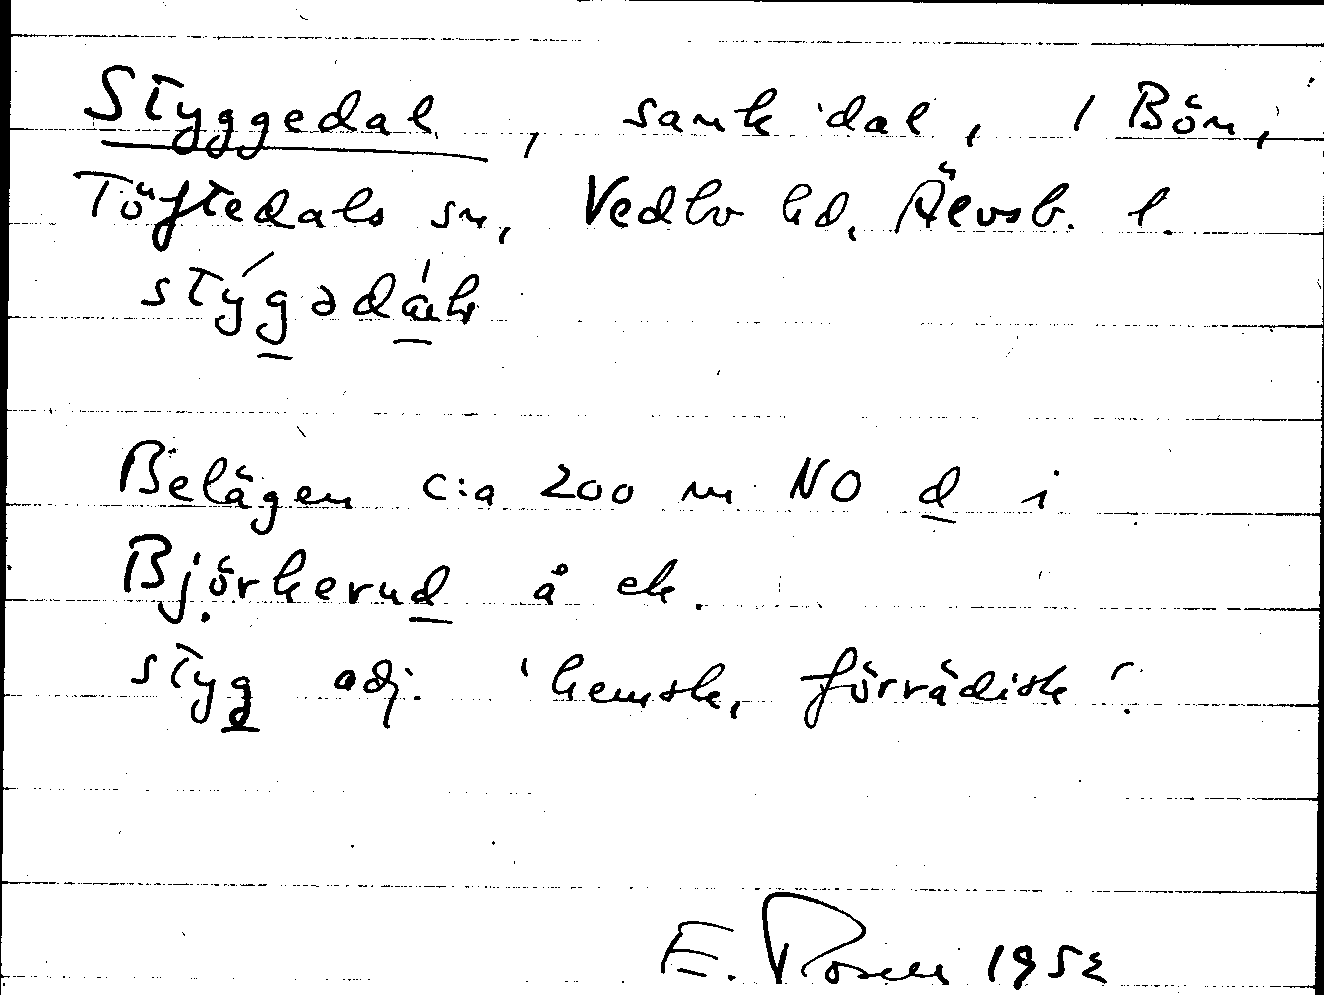 Styggedal, sank dal, 1 Bön,
Töftedals sn, Vedbo hd, Älvsb. l.
Belägen c:a 200 m NO d i
Björkerud å ek.
styg adj. 'hemsk, förrädisk'.
E. Rosell 1952